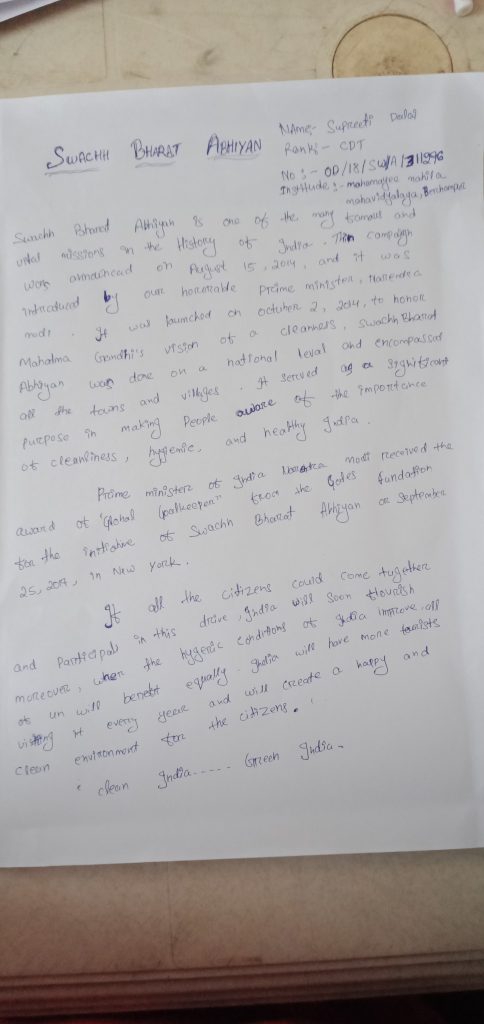 SWACHH BHARAT ABHIYAN
Name:- Supreeti Dalai
Rank:- CDT
No:- OD/18/SW/A/311296
Institude:- mahamayee mahila
mahavidyalaya, Berhampur
Swachh Bharat Abhiyan is one of the many famous and
vital missions in the History of India. This campaign
was announcad on August 15, 2014, and it was
introduced by our honorable Prime minister, Narendra
modi. It was launched on october 2, 2014, to honor
Mahatma Gandhi's vision of a cleanness. swachh Bharat
Abhiyan was done on a national leval and encompassed
all the towns and villages. It served as a significant
purpose in making People aware of the importance
of cleanliness, hygienic, and healthy India.
Prime minister of India Narendra modi received the
award of "Global Goalkeeper" from the Gates fundation
for the initiative of Swachh Bharat Abhiyan on September
25, 2019, in New York.
If all the citizens could come together
and Participat in this drive, India will soon flourish
moreover, when the hygenic conditions of India improve, all
of us will benefit equally. India will have more tourists
visiting it every year and will create a happy and
clean environment for the citizens.
" clean India..... Green India.